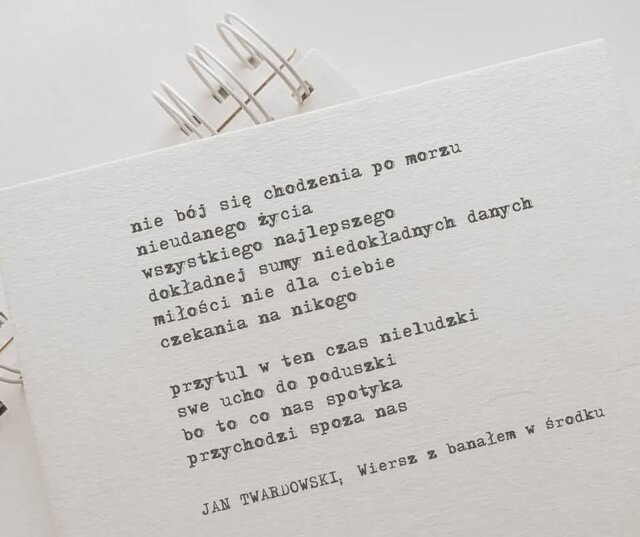 nie bój się chodzenia po morzu
nieudanego życia
wszystkiego najlepszego
dokładnej sumy niedokładnych danych
miłości nie dla ciebie
czekania na nikogo
przytul w ten czas nieludzki
swe ucho do poduszki
bo to co nas spotyka
przychodzi spoza nas
JAN TWARDOWSKI, Wiersz z banałem w środku